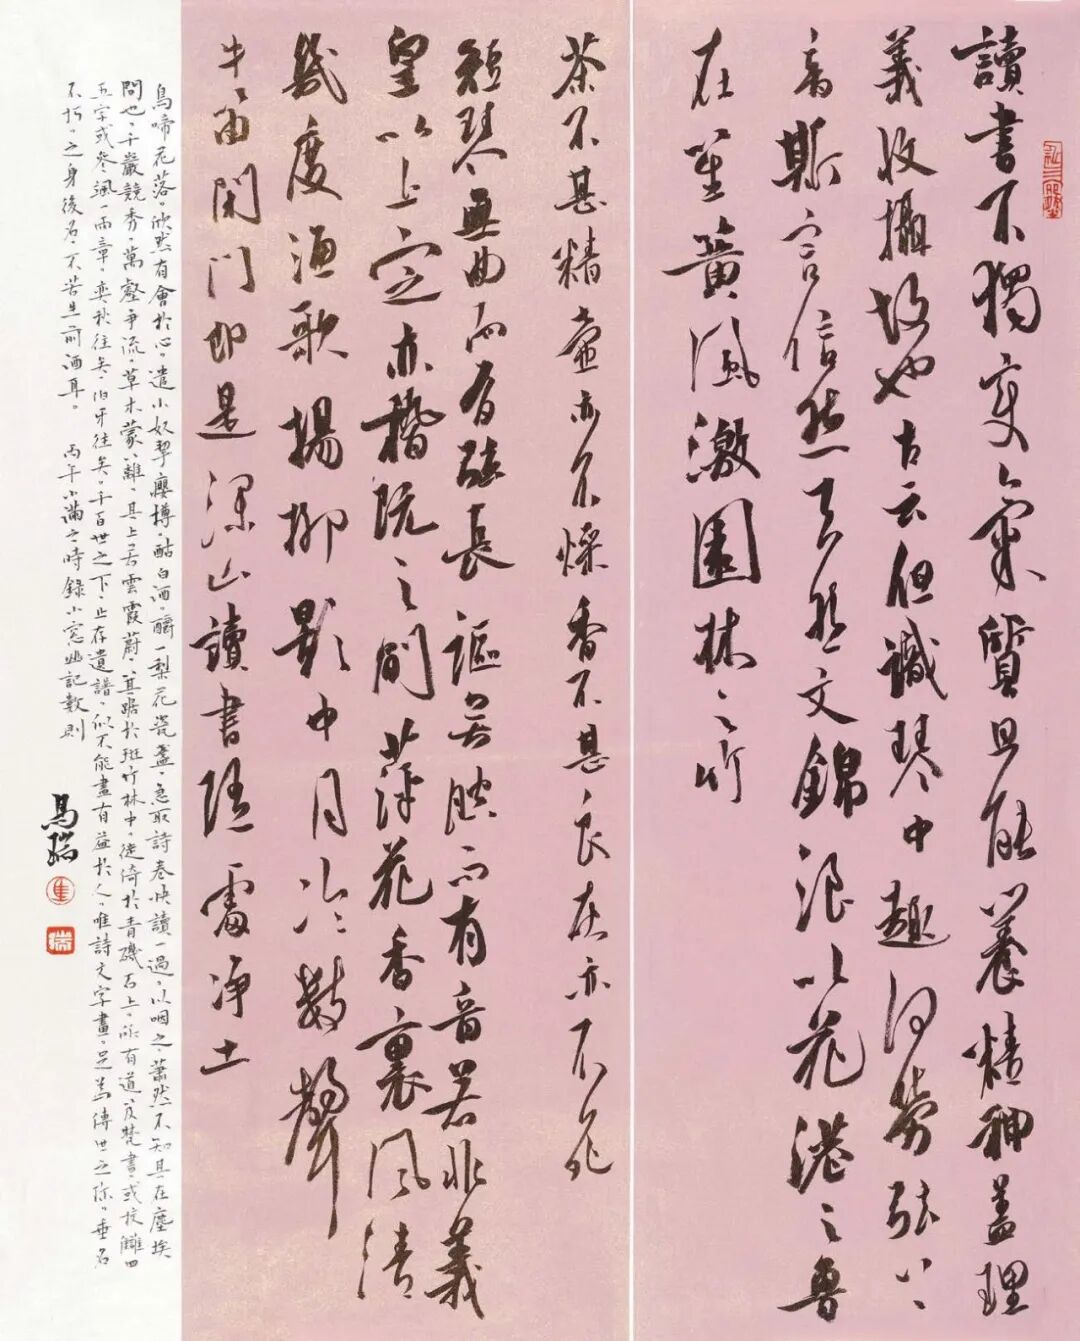 讀書不獨變氣質且能養精神蓋理
義收攝故也古云但識琴中趣何勞弦上
音斯言信然天然文錦浪吹花港之魚自
在笙簧風激園林之竹
茶不甚精壺亦不燥香不甚良灰亦不死
短琴無曲而有弦長謳無腔而有音若非羲
皇以上定亦嵇阮之間萍花香裏風清
幾度漁歌楊柳影中月冷數聲
牛笛閑門即是深山讀書隨處淨土
鳥啼花落。欣然有會於心。遣小奴挈癭樽。酤白酒。釂一梨花瓷盞。急取詩卷快讀一過。以咽之。蕭然不知其在塵埃
間也。千巖競秀。萬壑爭流。草木蒙其上若雲霞蔚。踞於斑竹林中。徙倚於青磯石上。所有道笈梵書。或校讎四
五字或參諷一兩章。奕秋往矣。伯牙往矣。千百世之下。止存遺譜。似不能盡有益於人。唯詩文字畫。足為傳世之珍。垂名
不朽。之身後名。不若生前酒耳。 丙午小滿之時錄小窗幽記數則
馬瑞